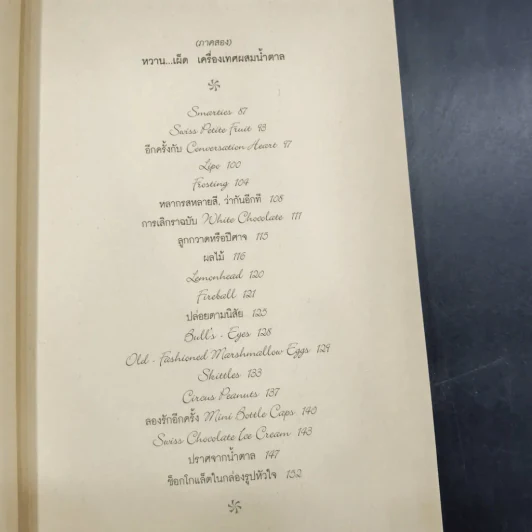 (ภาคสอง)
หวาน...เผ็ด เครื่องเทศผสมน้ำตาล
Smarties 87
Swiss Petite Fruit 93
อีกครั้งกับ Conversation Heart 97
Lips 100
Frosting 104
หลากรสหลายสี, ว่ากันอีกที 108
การเลิกราฉบับ White Chocolate 111
ลูกกวาดหรือปีศาจ 115
ผลไม้ 116
Lemonhead 120
Fireball 121
ปล่อยตามนิสัย 125
Bull's - Eyes 128
Old - Fashioned Marshmallow Eggs 129
Skittles 133
Circus Peanuts 137
ลองรักอีกครั้ง Mini Bottle Caps 140
Swiss Chocolate Ice Cream 143
ปราศจากน้ำตาล 147
ช็อกโกแล็ตในกล่องรูปหัวใจ 152